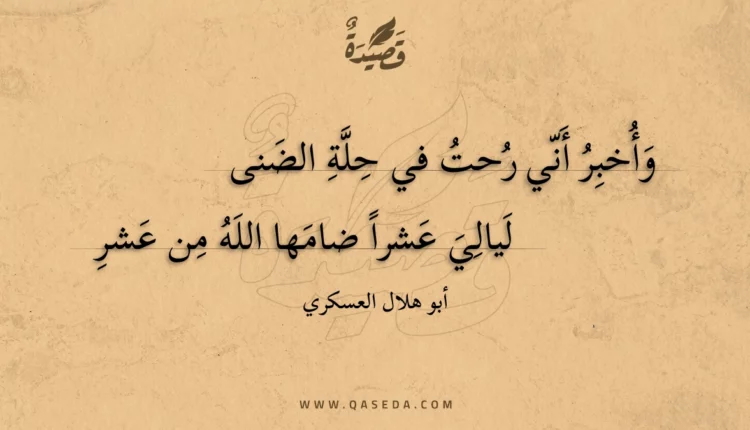 قَصِيدَةٌ
وَأُخبِرُ أَنّي رُحتُ في حِلَّةِ الضَنى
لَيالِيَ عَشراً ضامَها اللَهُ مِن عَشرِ
أبو هلال العسكري
WWW.QASEDA.COM